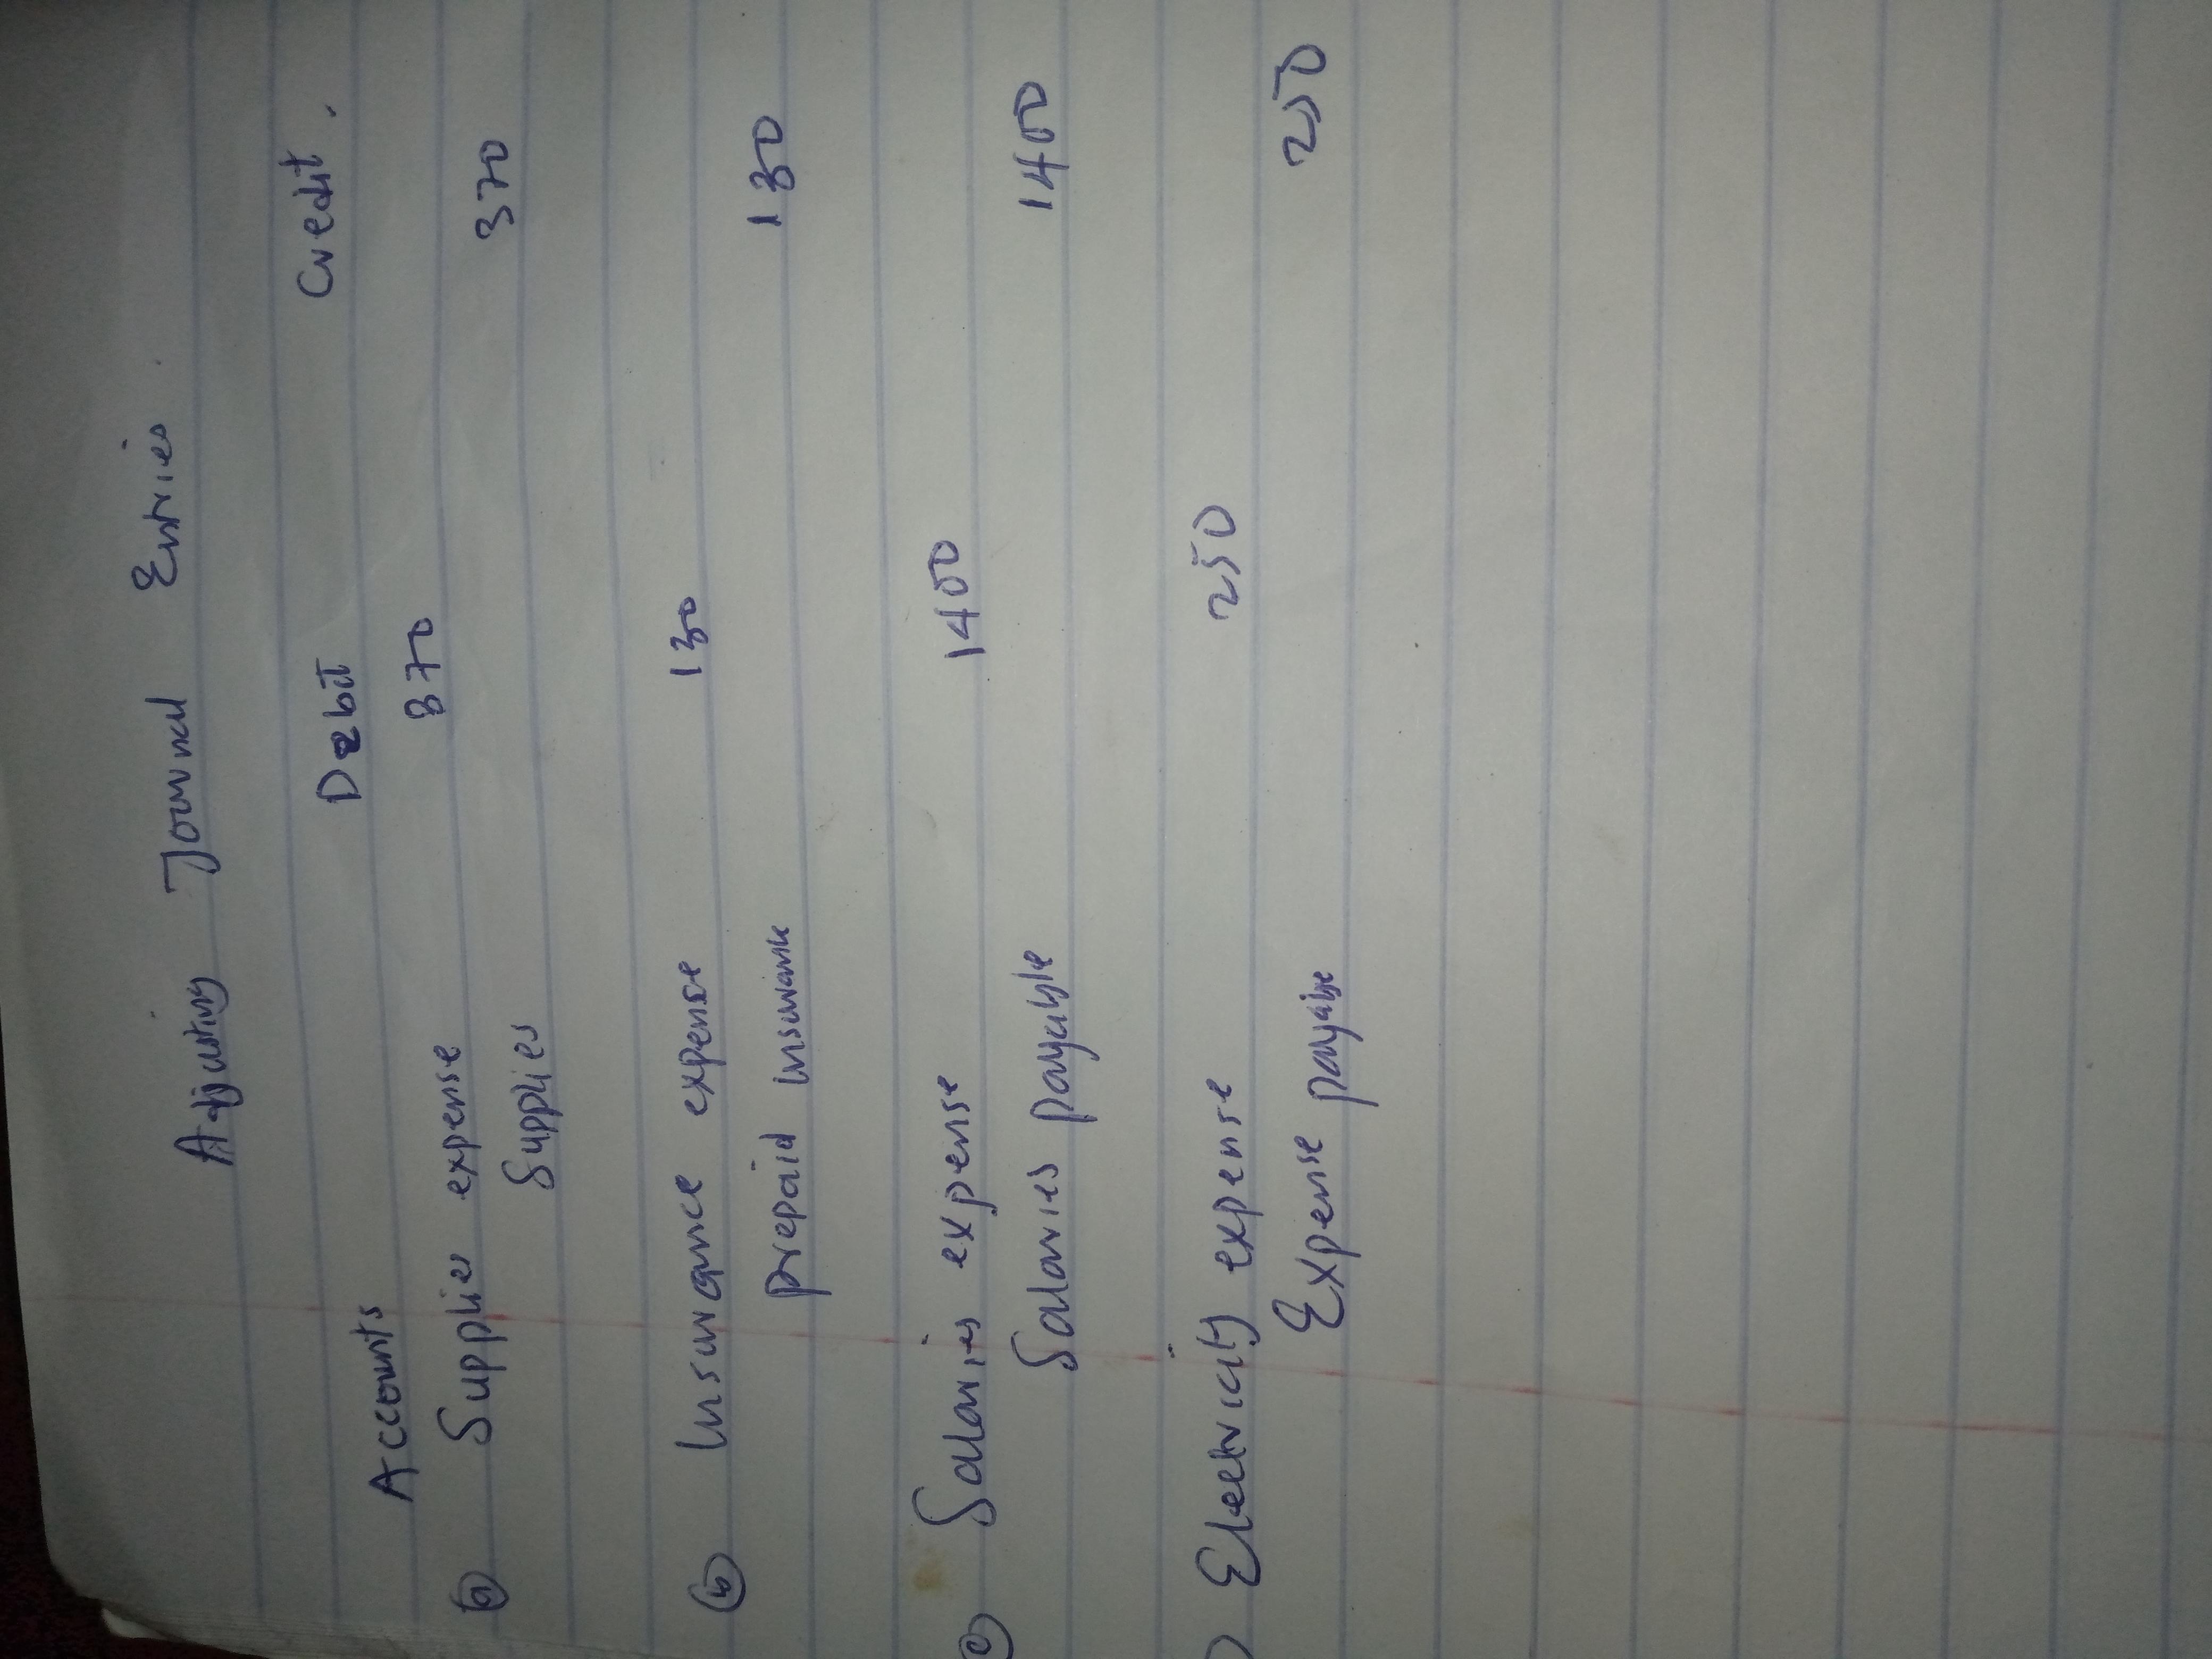 Adjusting Journal Entries
Accounts Debit Credit.
(a) Supplies expense 370
Supplies 370
(b) Insurance expense 130
prepaid Insurance 130
(c) Salaries expense 1400
Salaries payable 1400
) Electricity expense 250
Expense payable 250